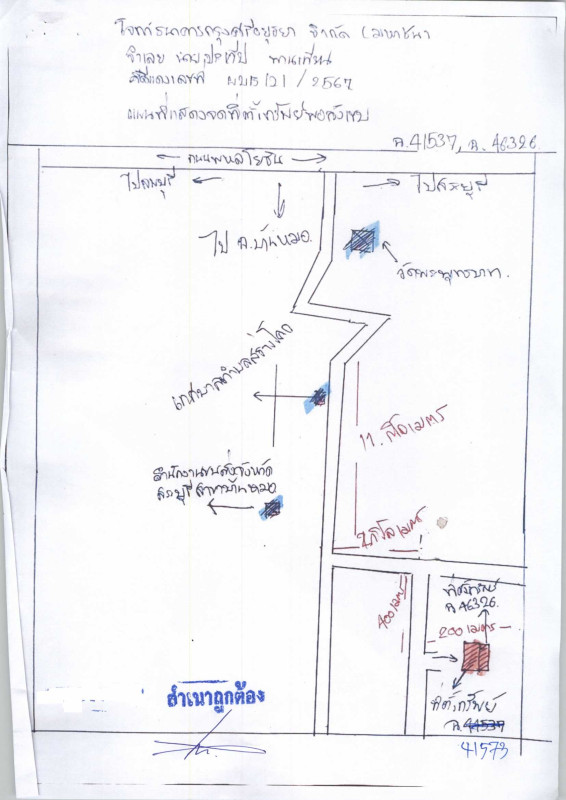 โจทก์ธนาคารกรุงศรีอยุธยา จำกัด (มหาชน)
จำเลย นายประทีป พานเทียน
คดีแดงเลขที่ ผบE121/2567
แผนที่แสดงจุดที่ตั้งทรัพย์พอสังเขป
ฉ.41537, ฉ. 46326
← ถนนพหลโยธิน →
ไปลพบุรี ←
→ ไปสระบุรี
ไป อ.บ้านหมอ
วัดพระพุทธบาท
เทศบาลตำบลสร้างโศก
11 กิโลเมตร
สำนักงานขนส่งจังหวัด
สระบุรี สาขาบ้านหมอ
2 กิโลเมตร
400 เมตร
ที่ตั้งทรัพย์
ฉ.46326
200 เมตร
ที่ตั้งทรัพย์
ฉ.41537
41573
สำเนาถูกต้อง